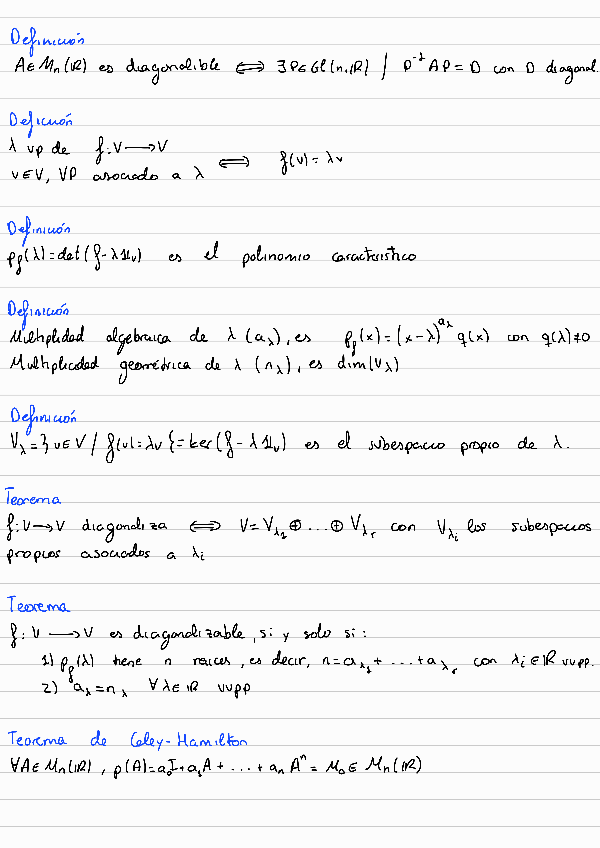 Definición
A ∈ Mn(ℝ) es diagonalible ⟺ ∃ P ∈ Gl(n,ℝ) / P⁻¹ A P = D con D diagonal.
Deficuón
λ vp de f: V ⟶ V
v ∈ V, VP asociado a λ ⟺ f(v) = λv
Definición
p_f(λ) = det(f - λ𝟙_v) es el polinomio característico
Definición
Multiplidad algebraica de λ (a_λ), es p_f(x) = (x - λ)^{a_λ} q(x) con q(λ) ≠ 0
Multiplicidad geométrica de λ (n_λ), es dim(V_λ)
Definición
V_λ = { v ∈ V / f(v) = λv } = ker(f - λ𝟙_v) es el subespacio propio de λ.
Teorema
f: V ⟶ V diagonaliza ⟺ V = V_{λ₁} ⊕ ... ⊕ V_{λ_r} con V_{λ_i} los subespacios
propios asociados a λ_i
Teorema
f: V ⟶ V es diagonalizable, si y solo si:
1) p_f(λ) tiene n raíces, es decir, n = a_{λ₁} + ... + a_{λ_r} con λ_i ∈ ℝ vvpp.
2) a_λ = n_λ ∀ λ ∈ ℝ vvpp
Teorema de Caley-Hamilton
∀ A ∈ Mn(ℝ), p(A) = a₀I + a₁A + ... + a_n Aⁿ = M₀ ∈ Mn(ℝ)